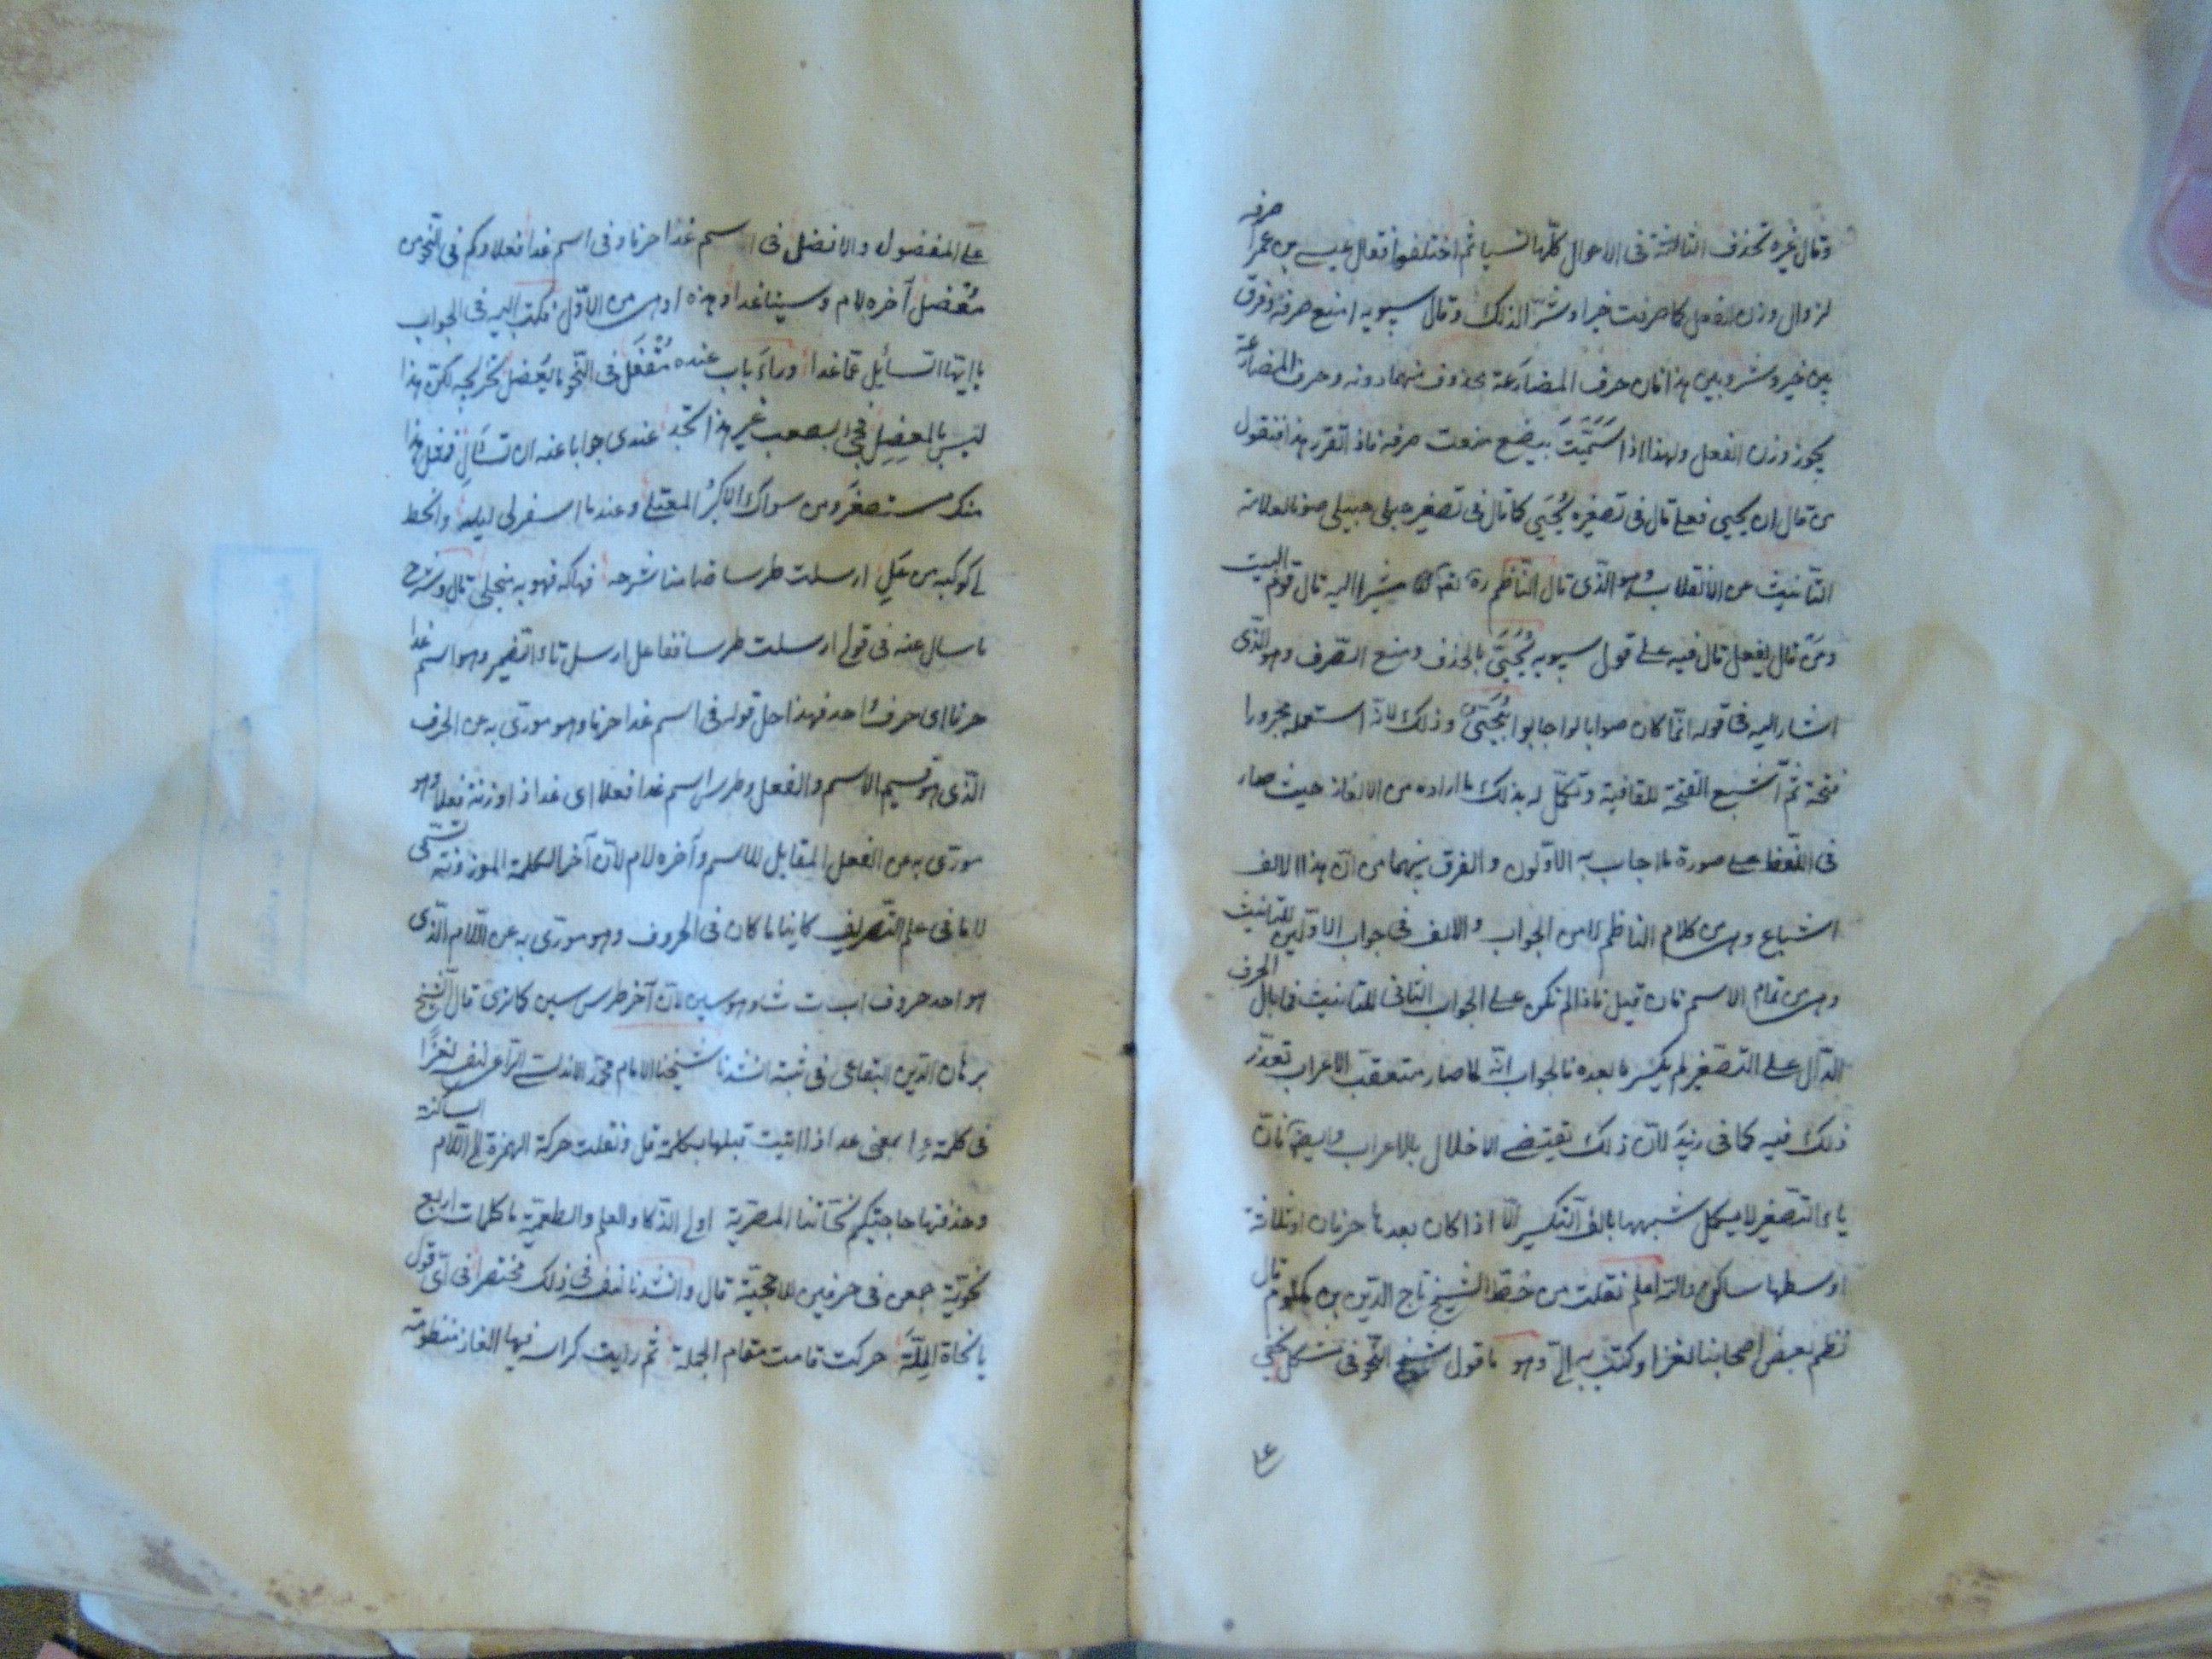 وقال غيره تحذف الثالثة فى الاحوال كلّها نسيا ثم اختلفوا فقال عيسى بن عمر اصرفه
لزوال وزن الفعل كما صرفت خيرا وشرّا لذلك وقال سيبويه امنع صرفه وفرق
بين خير وشر وبين هذا فان حرف المضارعة محذوف منهما دونه وحرف المضارعة
يحرز وزن الفعل ولهذا اذا سَمَّيْتَ بيضع منعت صرفه فاذا تقرر هذا فنقول
من قال ان يحيى فعلى قال فى تصغيره يُحَيى كما قال فى تصغير حبلى حبيلى صونا لعلامة
التأنيث عن الانقلاب وهو الّذى قال النّاظم ره مشيرا اليه قال قوم البيت
ومن قال يفعل قال فيه على قول سيبويه يُحَيَّى بالحذف ومنع الصّرف وهو الّذى
اشار اليه فى قوله انّما كان صوابا لو اجابوا بيُحَيَّى وذلك لانّه استعمله مجرورا
فتحة ثمّ اشبع الفتحة للقافية وتكمّل له بذلك ما اراده من الالغاز حيث صار
فى اللّفظ على صورة ما اجاب به الاوّلون والفرق بينهما من انّ هذا الالف
اشباع وهى من كلام الناظم لا من الجواب والالف فى جواب الاوّلين للتأنيث
وهى من تمام الاسم فان قيل فاذا لم تكن على الجواب الثانى للتأنيث فما بال الحرف
الدّال على التّصغير لم يكسر ما بعده فالجواب انّه لما صار متعقب الاعراب تعذّر
ذلك فيه كما فى زبيد لانّ ذلك يقتضى الاخلال بالاعراب وايضا فانّ
ياء التّصغير لا يكمل شبهها بالف التّكسير الّا اذا كان بعدها حرفان او ثلاثة
اوسطها ساكن والله اعلم نقلت من خط الشّيخ تاج الدّين بن مكتوم قال
نظم بعض اصحابنا لغزا وكتب به الىّ وهو ما قول شيخ النّحو فى مشكل يخفى
على المفضول والافضل فى اسم غدا حرفا وفى اسم غدا فعلا وكم فى النّحو من
مُعْضل آخره لام وسينا غدا وهذه ادهى من الاوّل فكتب اليه فى الجواب
يا ايّها السّائل عمّا غدا وراء باب عنده مُقْفَل فى النّحو ما يعضل تخريجه لكن هذا
ليس بالمعضِلِ فجئ بصعب غير هذا تجد عندى جوابا عنه ان تسأل فمثل هذا
منك مستصغر ومن سواك الاكبر المعتلى وعندما اسفر لى ليله وانحط
لى كوكبه من عَلِ ارسلت طرسا ضامنا شرحه فهاكه فهو به منجلى قال وشرح
ما سال عنه فى قولى ارسلت طرسا ففاعل ارسل تاء الضمير وهو اسم غدا
حرفا اى حرف واحد فهذا حل قوله فى اسم غدا حرفا وهو مورّى به عن الحرف
الّذى هو قسيم الاسم والفعل وطرس اسم غدا فعلا اى غدا اذا وزنته فعلا وهو
مورّى به عن الفعل المقابل للاسم وآخره لام لانّ آخر الكلمة الموزونة تسمّى
لاما فى علم التّصريف كاينا ما كان فى الحروف وهو مورّى به عن اللّام الّذى
هو احد حروف ا ب ت ث وهو سين لانّ آخر طرس سين كما ترى قال الشّيخ
برهان الدّين البقاعى فى ثبته انشدنا شيخنا الامام محمّد الاندلسى الرّاعى لنفسه لغزًا
فى كلمة إِ بمعنى عد اذا اتيت قبلها بكلمة قل ونقلت حركة الهمزة الى اللّام الساكنة
وحذفتها حاجيتكم نحاتنا المصريّة اولى الذّكاء والعلم والطعميّة ما كلمات اربع
نحويّة جمعن فى حرفين للاحجيّة قال وانشدنا لنفسه فى ذلك مختصرا فى اىّ قول
يا نحاة المِلّة حركت قامت مقام الجملة ثم رايت كراسة فيها الغاز منظومة